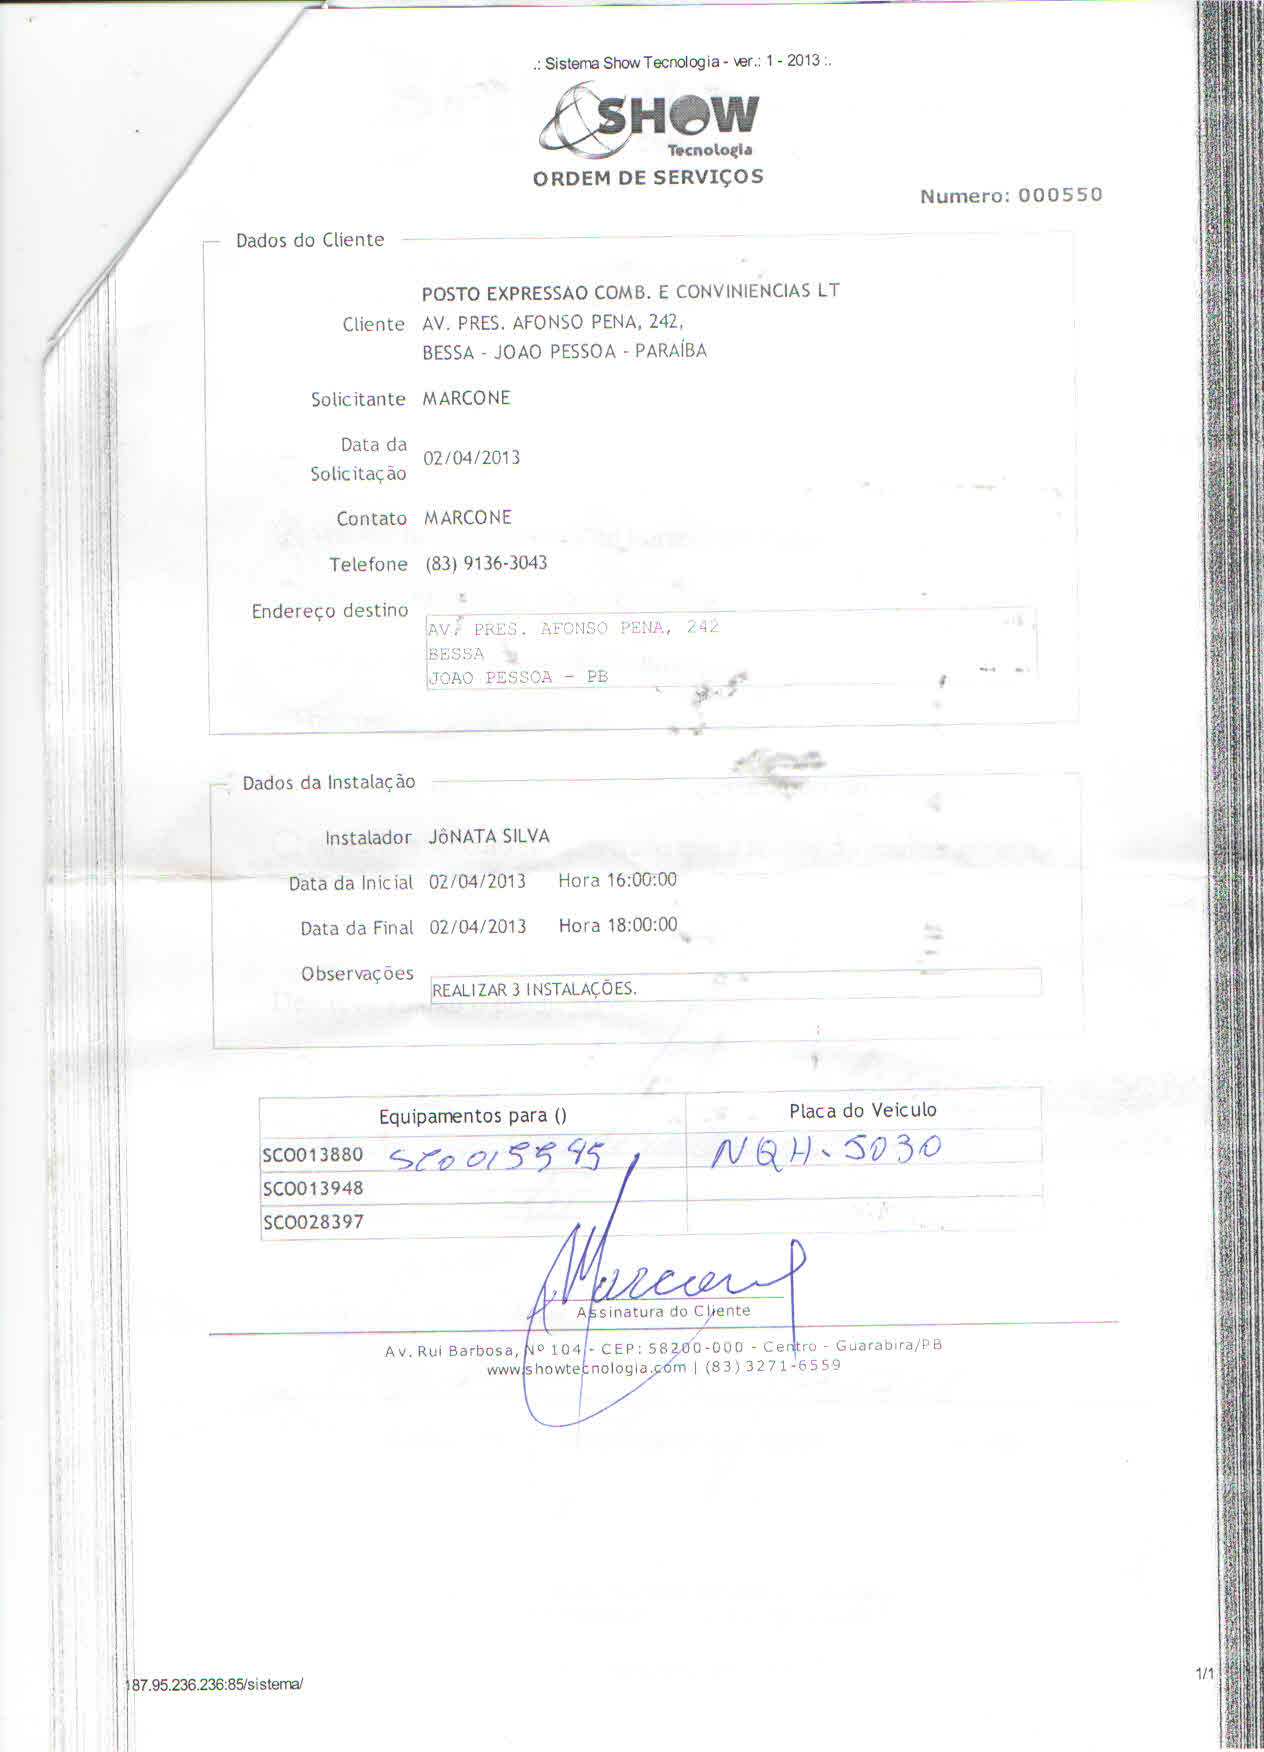 .: Sistema Show Tecnologia - ver.: 1 - 2013 :.
SHOW
Tecnologia
ORDEM DE SERVIÇOS
Numero: 000550
Dados do Cliente
POSTO EXPRESSAO COMB. E CONVINIENCIAS LT
Cliente AV. PRES. AFONSO PENA, 242,
BESSA - JOAO PESSOA - PARAÍBA
Solicitante MARCONE
Data da
Solicitação 02/04/2013
Contato MARCONE
Telefone (83) 9136-3043
Endereço destino
AV. PRES. AFONSO PENA, 242
BESSA
JOAO PESSOA - PB
Dados da Instalação
Instalador JÔNATA SILVA
Data da Inicial 02/04/2013 Hora 16:00:00
Data da Final 02/04/2013 Hora 18:00:00
Observações
REALIZAR 3 INSTALAÇÕES.
Equipamentos para () Placa do Veiculo
SCO013880 NQH-5030
SCO013948
SCO028397
Marcone
Assinatura do Cliente
Av. Rui Barbosa, Nº 104 - CEP: 58200-000 - Centro - Guarabira/PB
www.showtecnologia.com | (83) 3271-6559
87.95.236.236:85/sistema/
1/1